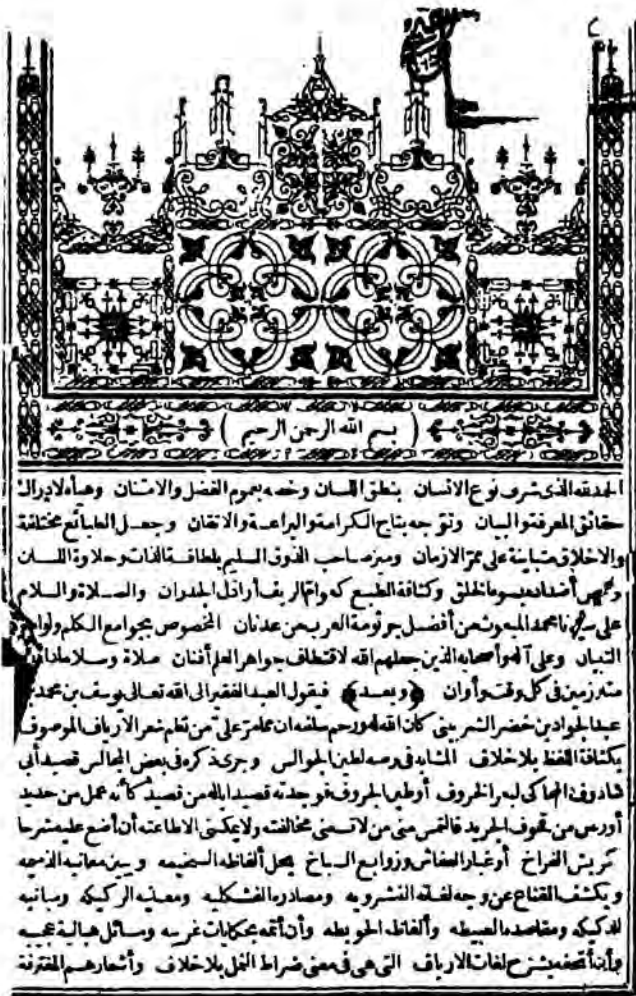 ( بسم الله الرحمن الرحيم )
الحمد لله الذى شرف نوع الانسان بنطق اللسان وخصه بعموم الفضل والامتنان وهيأه لادراك
حقائق المعرفة والبيان وتوجه بتاج الكرامة والبراعة والاتقان وجعل الطبائع مختلفة
والاخلاق متباينة على ممر الازمان وميز صاحب الذوق السليم بلطافة الذات وحلاوة اللسان
أضداده بسوء الخلق وكثافة الطبع كعوام الريف أراذل الجدران والصلاة والسلام
على سيدنا محمد المبعوث من أفضل جرثومة العرب من عدنان المخصوص بجوامع الكلم
التبيان وعلى آله وأصحابه الذين جعلهم الله لاقتطاف جواهر العلم أفنان صلاة وسلاما
متلازمين فى كل وقت وأوان (وبعد) فيقول العبد الفقير الى الله تعالى يوسف بن محمد بن
عبد الجواد بن خضر الشربينى كان الله له ورحم سلفه ان مما مر على من نظم شعر الارياف الموصوف
بكثافة اللفظ بلا خلاف المشابه فى رصه لطين الجوالس وجرى ذكره فى بعض المجالس قصيد أبى
شادوف المحاكى لبعر الخروف أو طين الجروف فوجدته قصيدا ياله من قصيد كأنه عمل من حديد
أو رص من قحوف الجريد فالتمس منى من لا تسعنى مخالفته ولا يمكننى الا طاعته أن أضع عليه شرحا
كريش الفراخ أو غبار العفاش وزوابع السباخ يحل ألفاظه السخيمه ويبين معانيه الذميمه
ويكشف القناع عن وجه لغاته الفشرويه ومصادره الفشكليه ومعنيه الركيكه ومبانيه
الدكيكه ومقاصده العبيطه وألفاظه الحويطه وأن أتمه بحكايات غريبه ومسائل هبالية عجيبه
وأن أتحفه بشرح لغات الارياف التى هى فى معنى ضراط النمل بلا خلاف وأشعارهم المغترفة